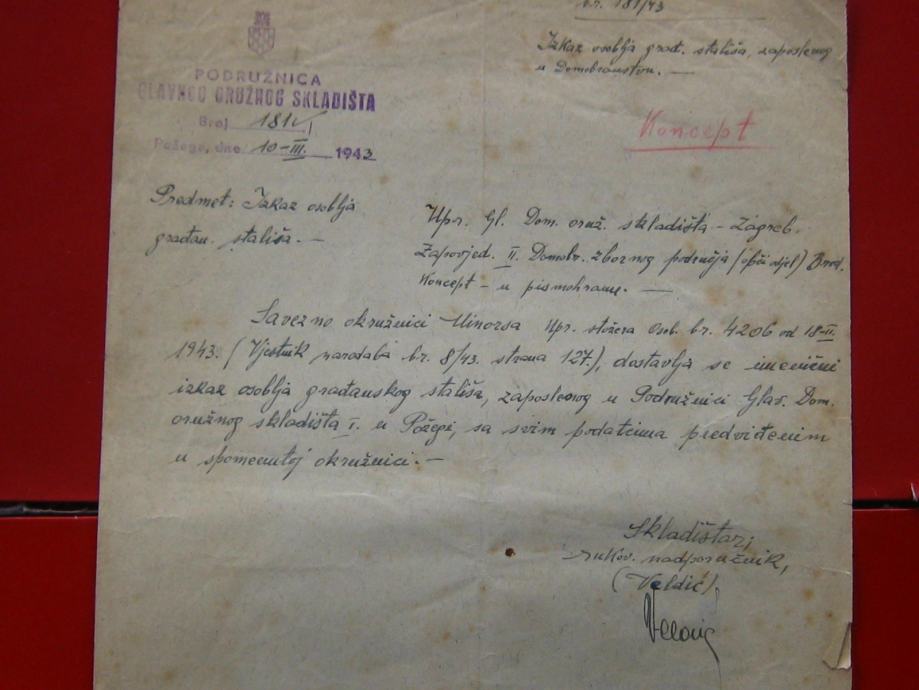 br. 181/43
Izkaz osoblja građ. stališa, zaposlenog
u Domobranstvu. —
PODRUŽNICA
GLAVNOG ORUŽNOG SKLADIŠTA
Broj 181
Požega, dne 10-III. 1943
Koncept
Predmet: Izkaz osoblja
građan. stališa. —
Upr. Gl. Dom. oruž. skladišta - Zagreb.
Zapovjed. II. Domobr. zbornog područja (obći odjel) Brod.
Koncept - u pismohranu. —
Savezno okružnici Minorsa Upr. stožera Osob. br. 4206 od 18-II.
1943. (Vjestnik naredaba br. 8/43. strana 127.), dostavlja se imenični
izkaz osoblja građanskog stališa, zaposlenog u Područnici Glav. Dom.
oružnog skladišta I. u Požegi, sa svim podatcima predviđenim
u spomenutoj okružnici. —
Skladištar,
rukov. nadporučnik,
(Veldić).